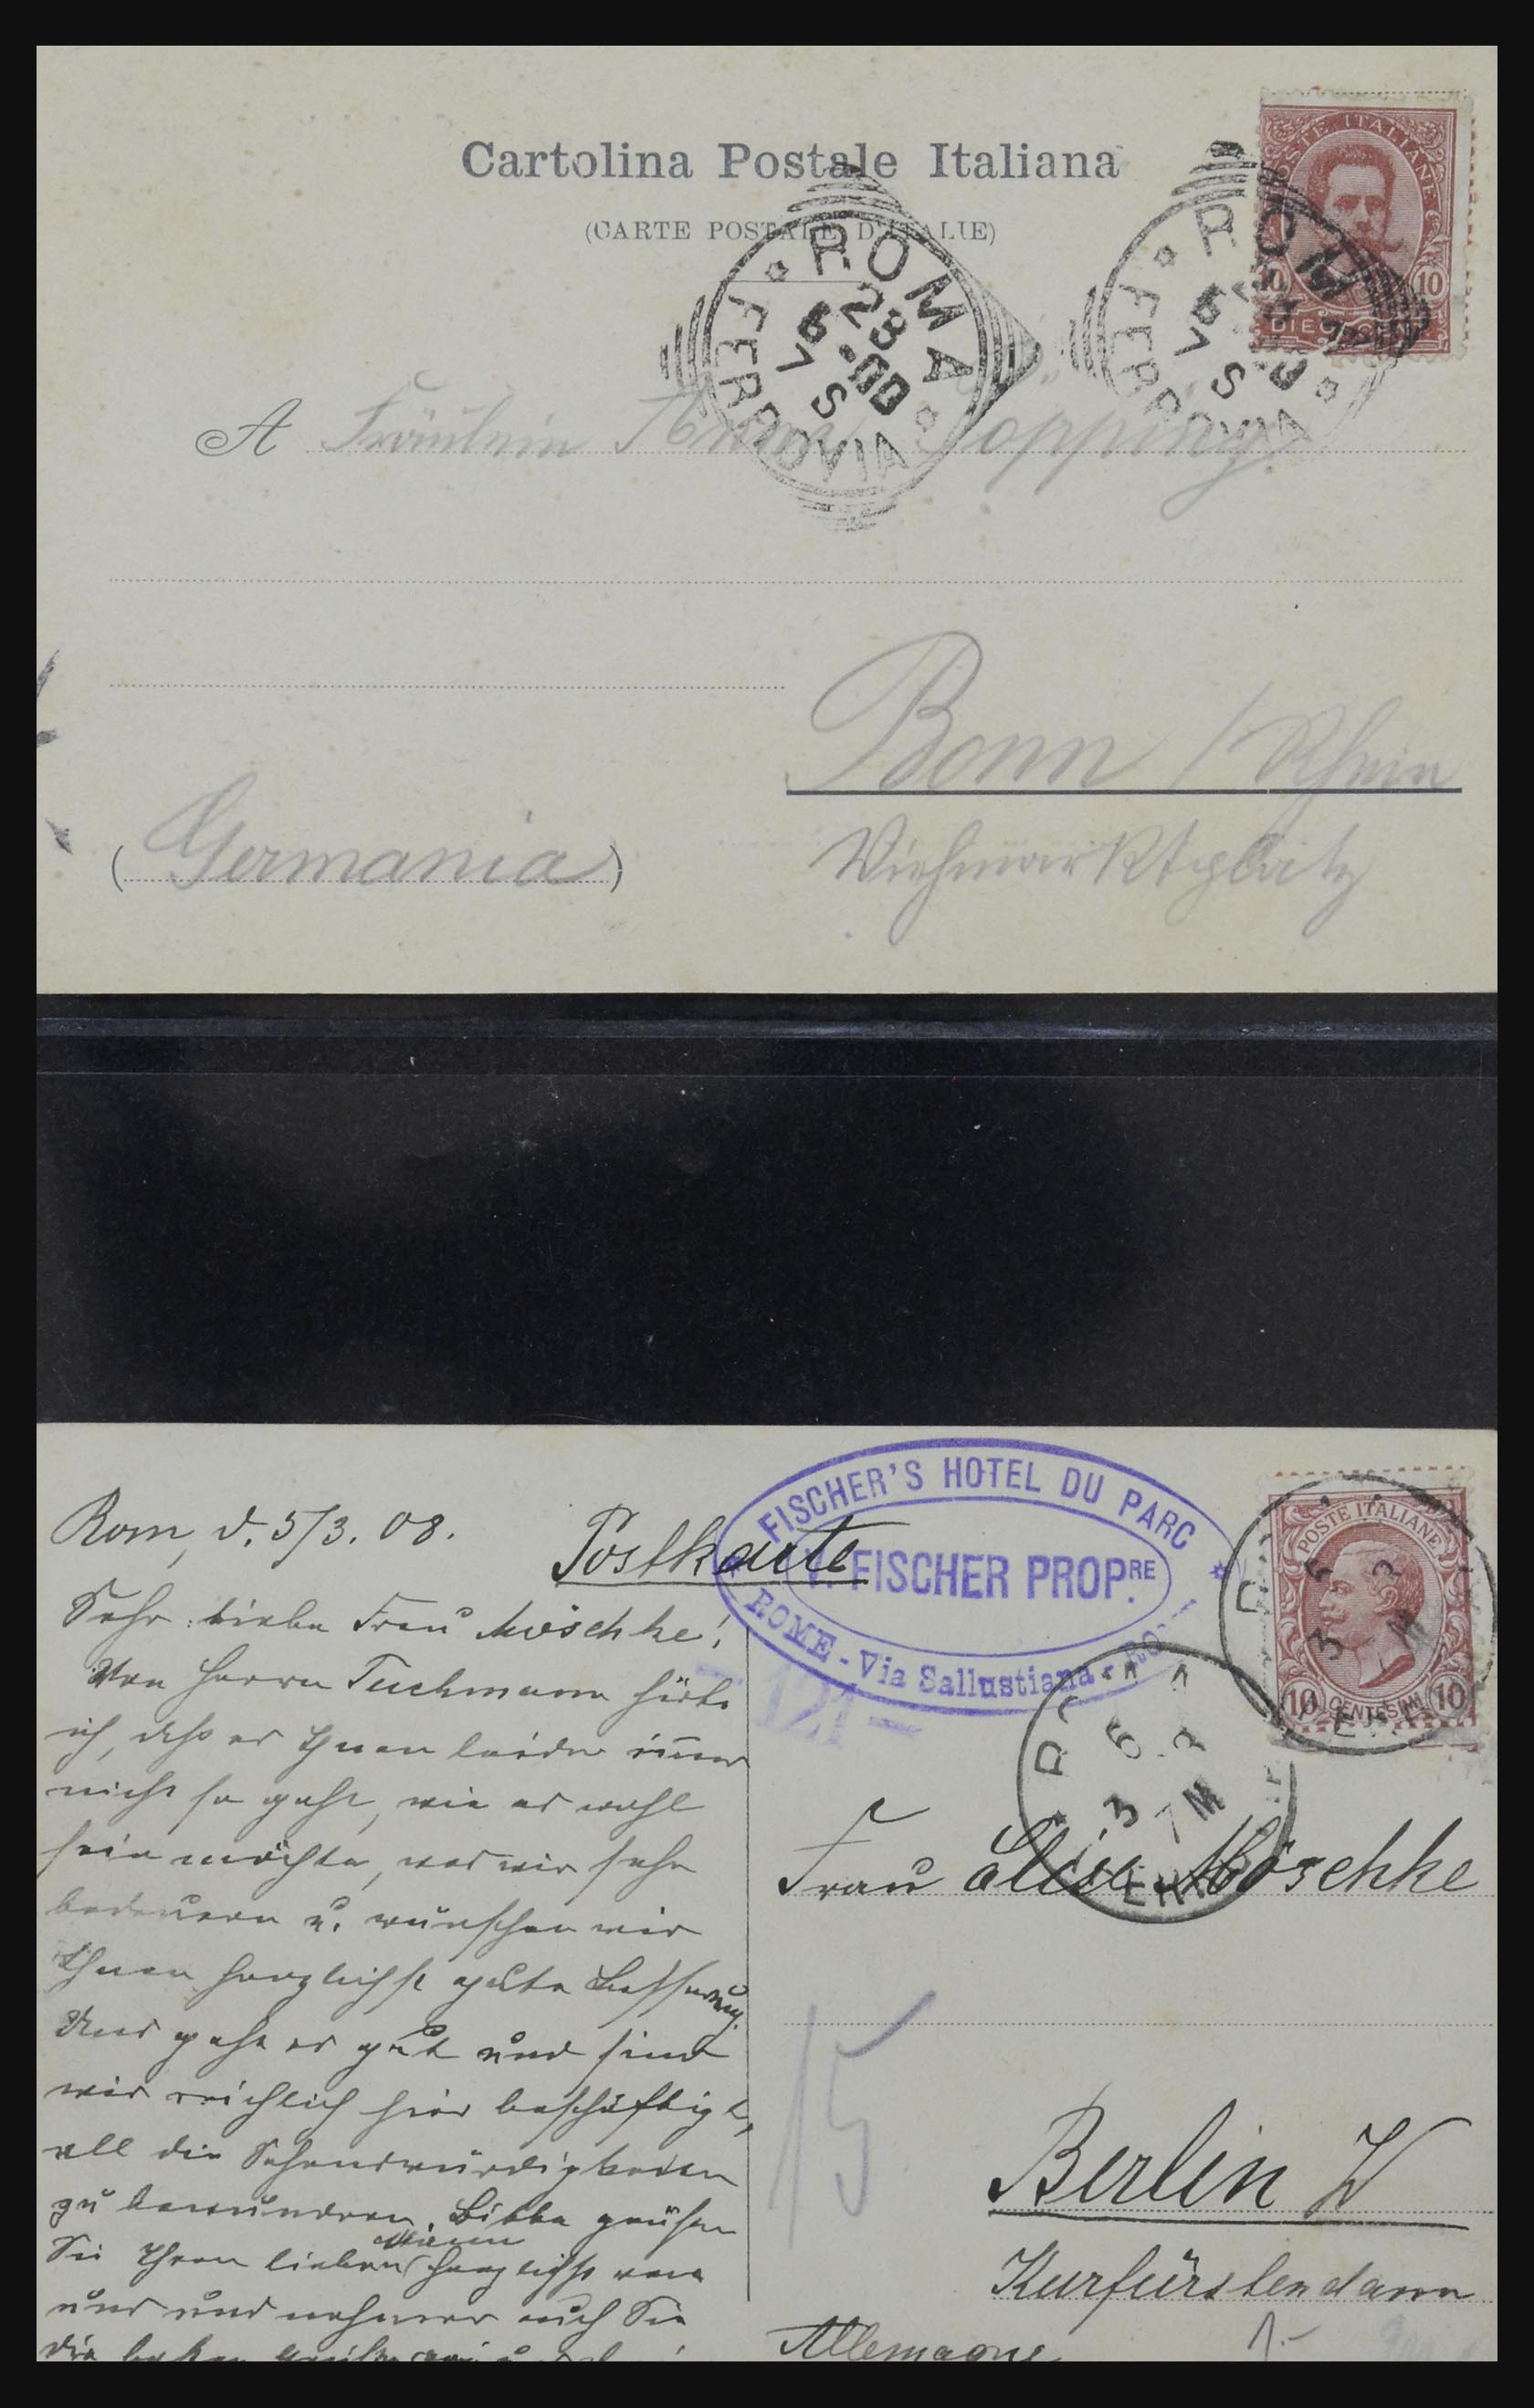 Cartolina Postale Italiana
(CARTE POSTALE D'ITALIE)
POSTE ITALIANE
10 10
DIECI
ROMA
FERROVIA
23
6
00
7 S
ROMA
FERROVIA
6
7 S
A Fräulein Topping
Bonn / Rhein
(Germania)
Viehmarktplatz
FISCHER'S HOTEL DU PARC
V. FISCHER PROPRE.
ROME - Via Sallustiana -
POSTE ITALIANE
10 CENTESIMI 10
Rom, d. 5/3. 08.
Postkarte
Sehr liebe Frau Möschke!
Von Herrn Tuchmann hörte
ich, daß es Ihnen leider immer
nicht so geht, wie es wohl
sein möchte, was wir sehr
bedauern u. wünschen wir
Ihnen herzlichst gute Besserung.
Uns geht es gut und sind
wir reichlich hier beschäftigt,
all die Sehenswürdigkeiten
zu bewundern. Bitte grüßen
Sie Ihren lieben Mann herzlichst von
uns und nehmen auch Sie
die besten Grüße
6 3
3 7 M
Frau Elise Möschke
15
Berlin W
Kurfürstendamm
Allemagne
1.-